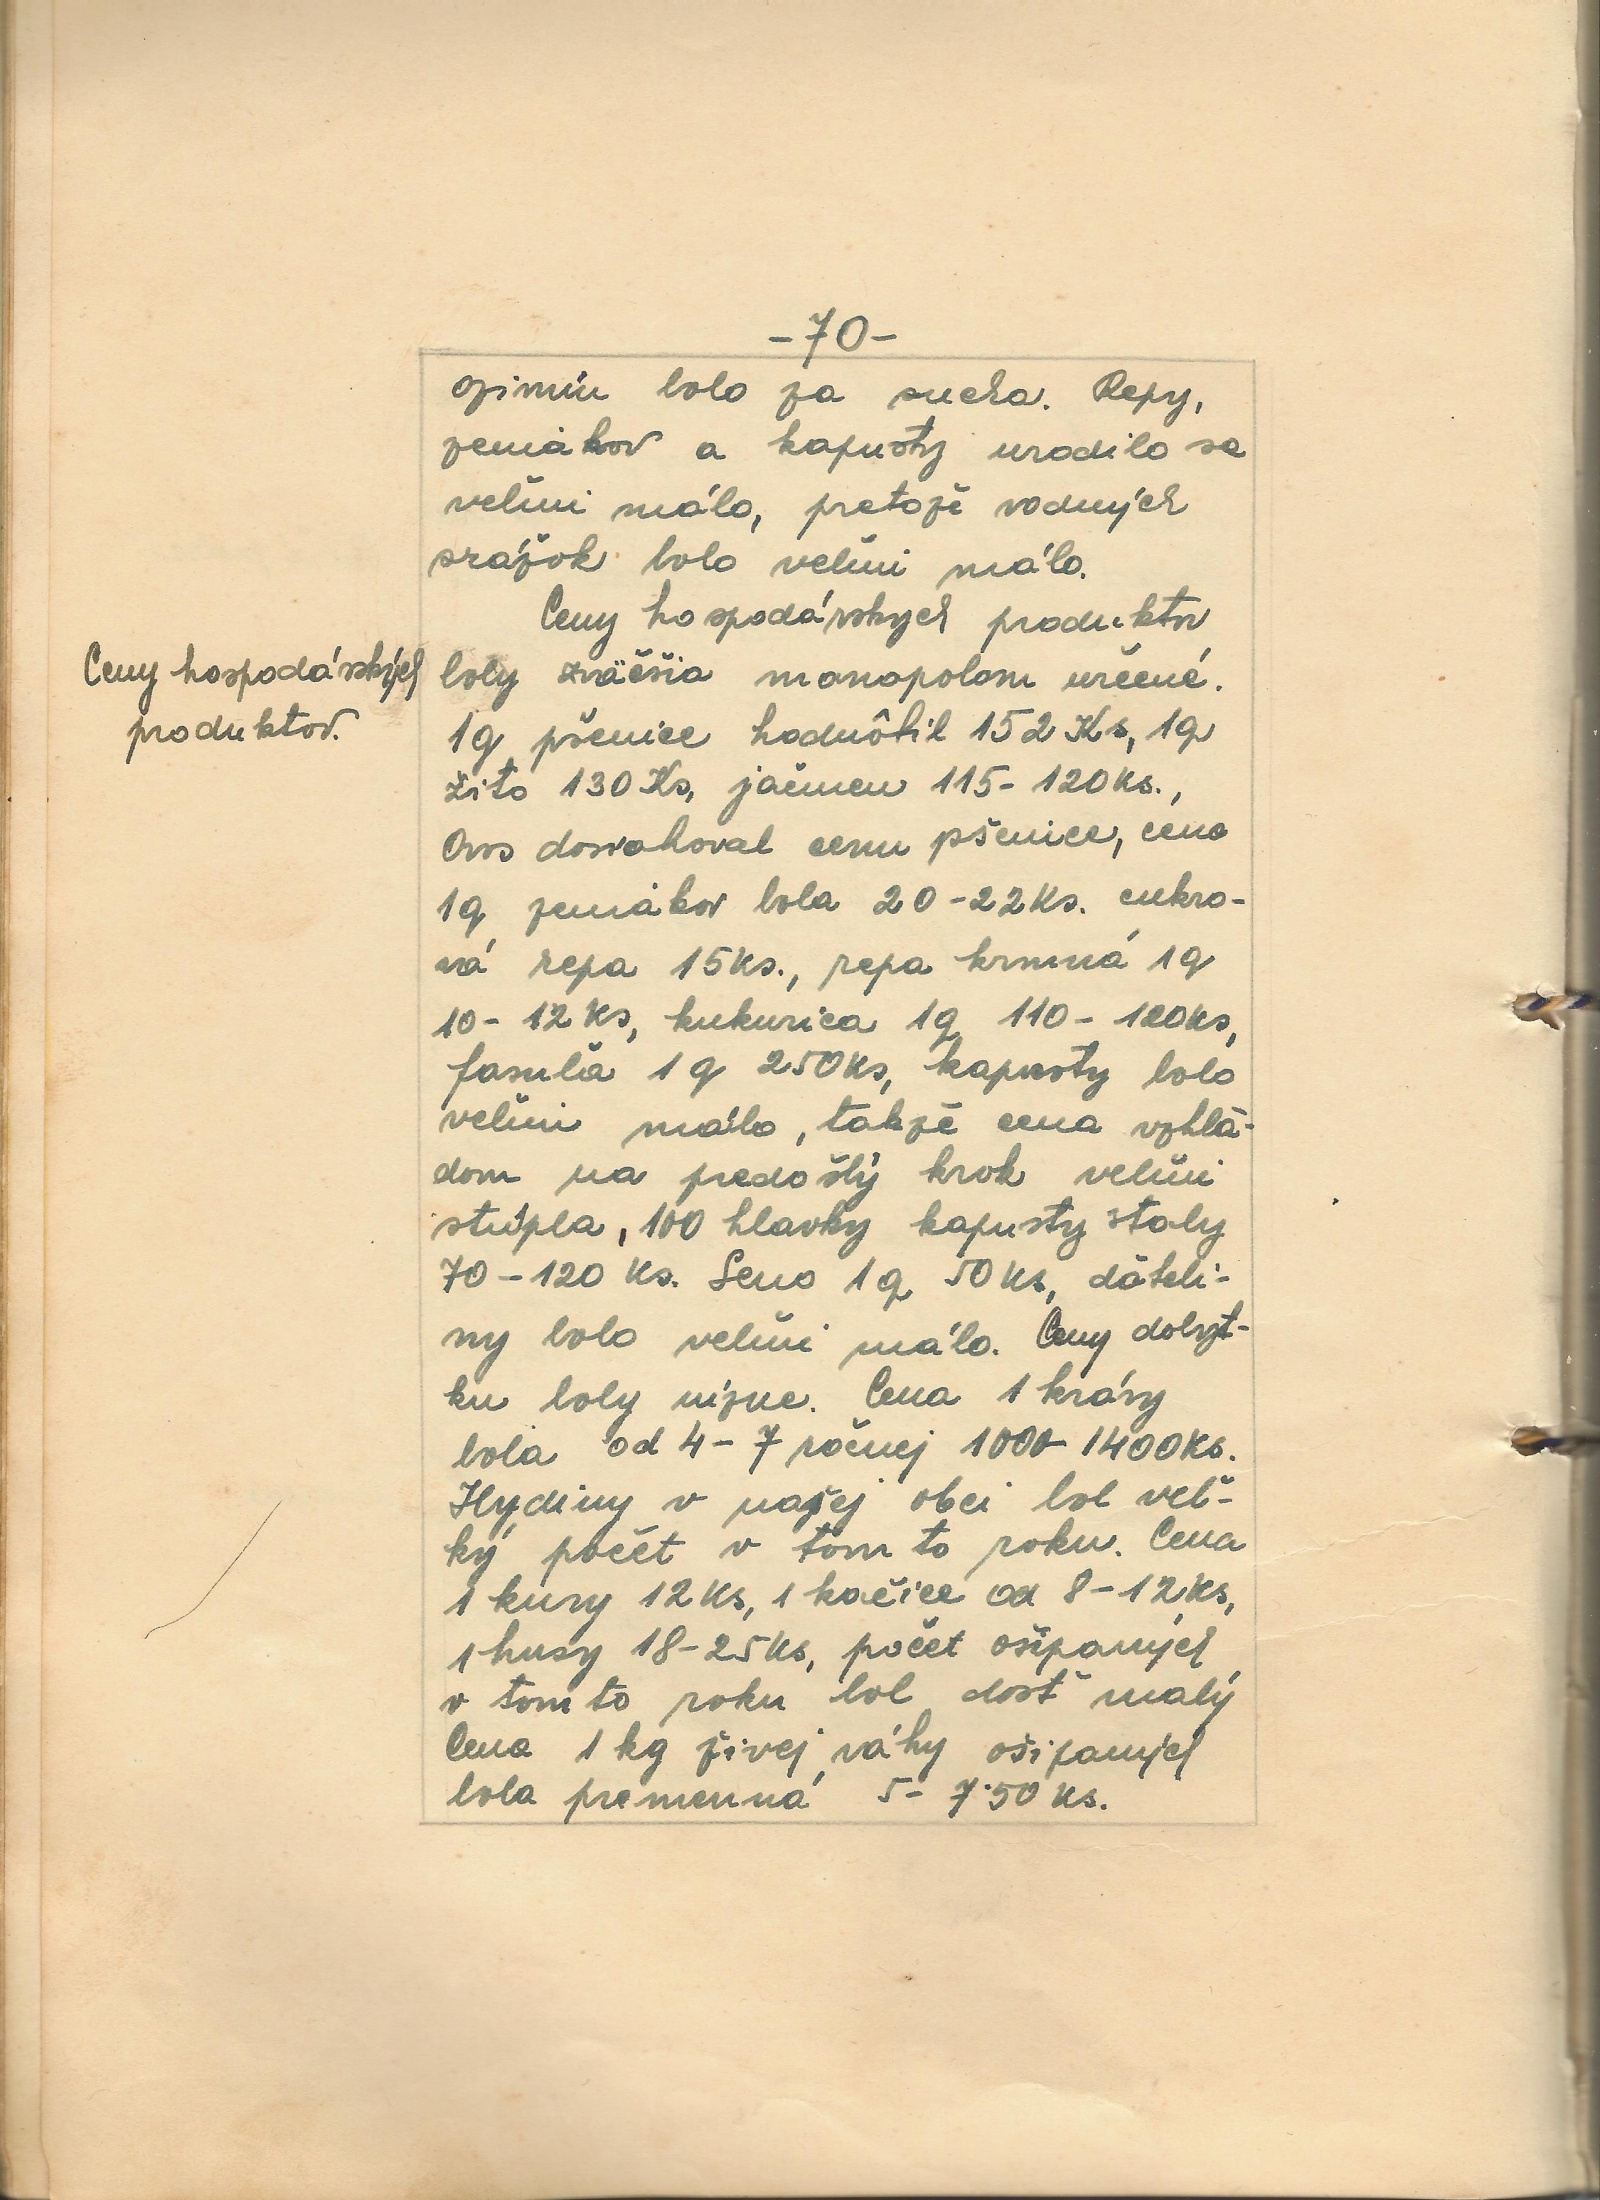 -70-
ozimín bolo za sucha. Repy,
zemiakov a kapusty urodilo sa
veľmi málo, pretože vodných
srážok bolo veľmi málo.
Ceny hospodárskych produktov
Ceny hospodárskych
produktov.
boly zväčšia monopolom určené.
1q pšenice hodnôtil 152 Ks, 1q
žito 130 Ks, jačmen 115- 120 Ks.,
Ovos dosahoval cenu pšenice, cena
1q zemiakov bola 20-22 Ks. cukro-
vá repa 15 Ks., repa krmná 1q
10- 12 Ks, kukurica 1q 110- 120 Ks,
fasuľa 1q 250 Ks, kapusty bolo
veľmi málo, takže cena vzhľa-
dom na predošlý krok veľmi
stúpla, 100 hlavky kapusty staly
70-120 Ks. Seno 1q 50 Ks, dáteli-
ny bolo veľmi málo. Ceny dobyt-
ku boly nízue. Cena 1 krávy
bola od 4-7 ročnej 1000- 1400 Ks.
Hydiny v našej obci bol veľ-
ký počet v tom to roku. Cena
1 kury 12 Ks, 1 kačice od 8-12 Ks,
1 husy 18-25 Ks, počet ošípaných
v tom to roku bol dosť malý
Cena 1 kg živej váhy ošípaných
bola premenná 5- 7·50 Ks.